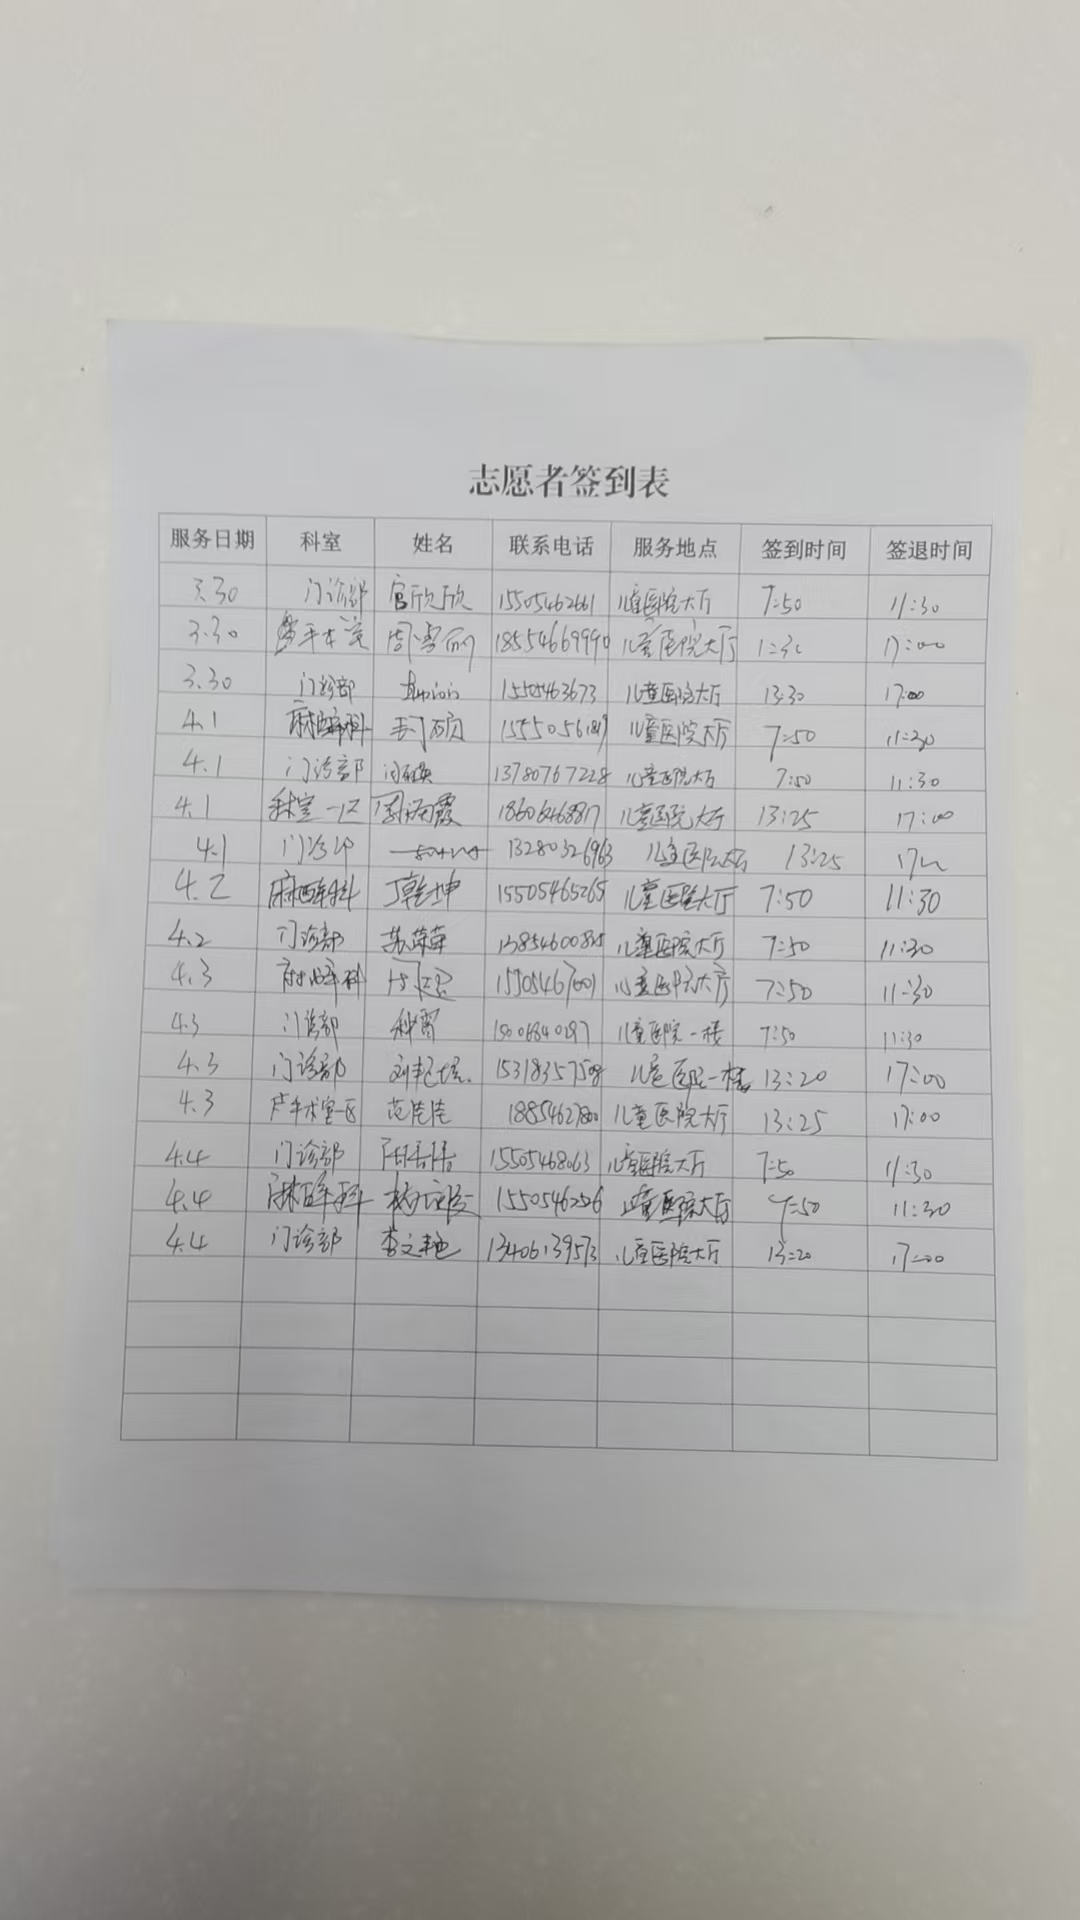 志愿者签到表
服务日期 科室 姓名 联系电话 服务地点 签到时间 签退时间
3.30 门诊部 官欣欣 15505462661 儿童医院大厅 7:50 11:30
3.30 18554669990 儿童医院大厅 17:00
3.30 门诊部 15505463673 儿童医院大厅 13:30 17:00
4.1 麻醉科 儿童医院大厅 7:50 11:30
4.1 门诊部 13780767228 儿童医院大厅 7:50 11:30
4.1 一区 18606468817 儿童医院大厅 13:25 17:00
4.1 13280326963 儿童医院大厅 13:25
4.2 麻醉科 丁乾坤 15505465265 儿童医院大厅 7:50 11:30
4.2 门诊部 儿童医院大厅 7:50 11:30
4.3 麻醉科 儿童医院大厅 7:50 11:30
4.3 门诊部 儿童医院一楼 7:50 11:30
4.3 门诊部 15318357508 儿童医院一楼 13:20 17:00
4.3 手术室一区 范佳佳 儿童医院大厅 13:25 17:00
4.4 门诊部 15505468063 儿童医院大厅 7:50 11:30
4.4 麻醉科 儿童医院大厅 7:50 11:30
4.4 门诊部 李文艳 13406139573 儿童医院大厅 13:20 17:00